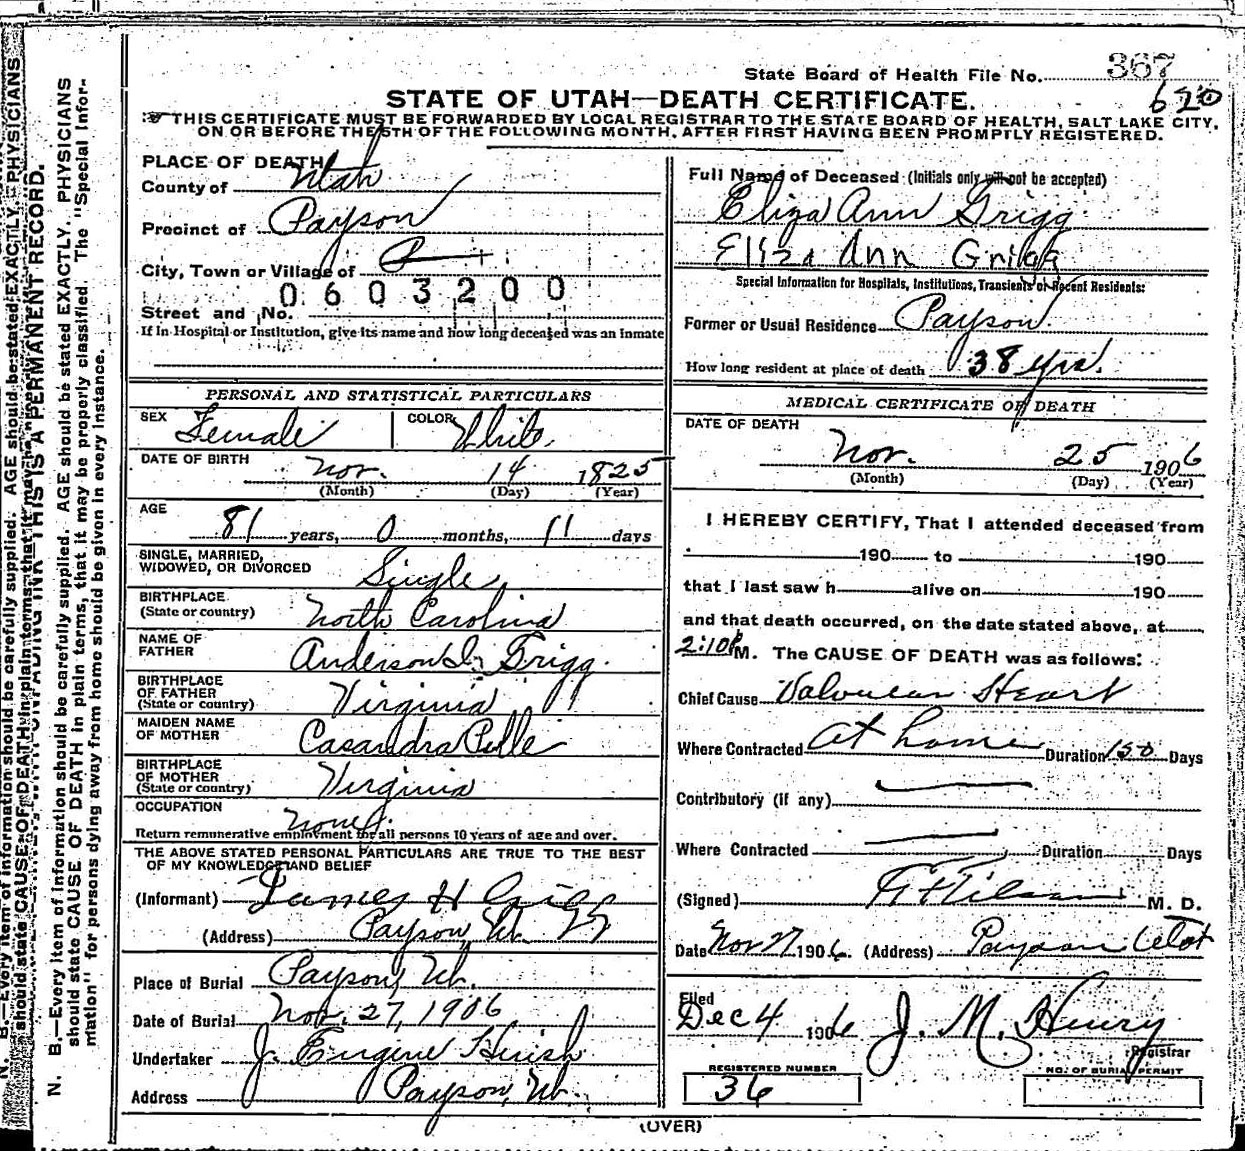 State Board of Health File No. 367
620
STATE OF UTAH—DEATH CERTIFICATE.
THIS CERTIFICATE MUST BE FORWARDED BY LOCAL REGISTRAR TO THE STATE BOARD OF HEALTH, SALT LAKE CITY,
ON OR BEFORE THE 5TH OF THE FOLLOWING MONTH, AFTER FIRST HAVING BEEN PROMPTLY REGISTERED.
PLACE OF DEATH
County of Utah
Precinct of Payson
City, Town or Village of
0603200
Street and No.
If in Hospital or Institution, give its name and how long deceased was an inmate
Full Name of Deceased (Initials only will not be accepted)
Eliza Ann Grigg
Eliza Ann Grigg
Special Information for Hospitals, Institutions, Transients or Recent Residents:
Former or Usual Residence Payson
How long resident at place of death 38 yrs.
PERSONAL AND STATISTICAL PARTICULARS
SEX Female COLOR White
DATE OF BIRTH Nov. 14 1825
(Month) (Day) (Year)
AGE
81 years, 0 months, 11 days
SINGLE, MARRIED,
WIDOWED, OR DIVORCED Single
BIRTHPLACE
(State or country) North Carolina
NAME OF
FATHER Anderson I. Grigg.
BIRTHPLACE
OF FATHER
(State or country) Virginia
MAIDEN NAME
OF MOTHER Casandra
BIRTHPLACE
OF MOTHER
(State or country) Virginia
OCCUPATION None
Return remunerative employment for all persons 10 years of age and over.
THE ABOVE STATED PERSONAL PARTICULARS ARE TRUE TO THE BEST
OF MY KNOWLEDGE AND BELIEF
(Informant) James H Grigg
(Address) Payson, Ut.
Place of Burial Payson, Ut.
Date of Burial Nov. 27, 1906
Undertaker J. Eugene Huish
Address Payson, Ut.
MEDICAL CERTIFICATE OF DEATH
DATE OF DEATH
Nov. 25 1906
(Month) (Day) (Year)
I HEREBY CERTIFY, That I attended deceased from
190 to 190
that I last saw h alive on 190
and that death occurred, on the date stated above, at
2:10 P M. The CAUSE OF DEATH was as follows:
Chief Cause Valvular Heart
Where Contracted at home Duration 150 Days
Contributory (if any)
Where Contracted Duration Days
(Signed) M. D.
Date Nov 27 1906. (Address) Payson Utah
Filed
Dec 4 1906 J. M. Henry
Registrar
REGISTERED NUMBER
36
NO. OF BURIAL PERMIT
(OVER)
N. B.—Every item of information should be carefully supplied. AGE should be stated EXACTLY. PHYSICIANS
should state CAUSE OF DEATH in plain terms, that it may be properly classified. The "Special Infor-
mation" for persons dying away from home should be given in every instance.